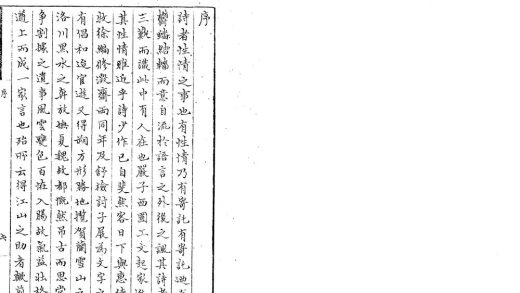 序
詩者性情之事也有性情乃有寄託有寄託迺
鬱蟠結蟠而意自流於語言之外後之讀其詩者
三歎而識此中有人在也嚴子西園工文起家
其性情雖近乎詩少作已自斐然客日下與惠
徐編修澂齋兩同年及舒檢討子展為文字之
有倡和迨官遊又得朔方形勝地攬賀蘭雪山之
洛川黑水之奔放撫夏魏故都慨然弔古而思當
爭割據之遺事風雲變色百恠入腸故氣益壯
遒上而成一家言也殆所云得江山之助者歟
序